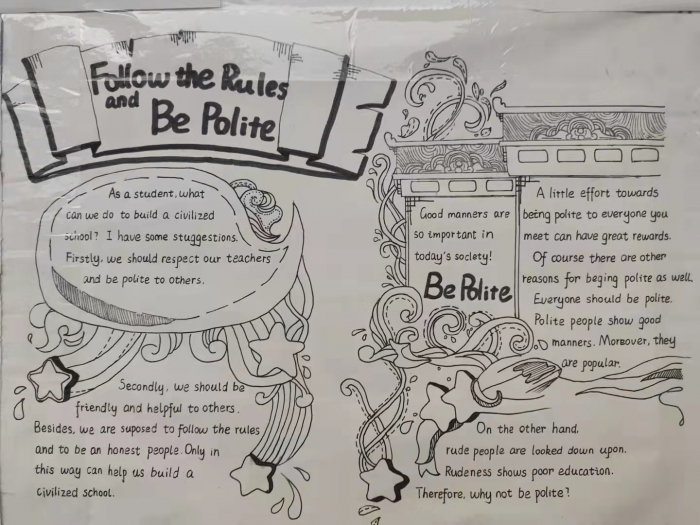 Follow the Rules
and
Be Polite
As a student, what
can we do to build a civilized
school? I have some stuggestions.
Firstly, we should respect our teachers
and be polite to others.
Secondly, we should be
friendly and helpful to others.
Besides, we are suposed to follow the rules
and to be an honest people. Only in
this way can help us build a
civilized school.
Good manners are
so important in
today's society!
Be Polite
A little effort towards
being polite to everyone you
meet can have great rewards.
Of course there are other
reasons for beging polite as well.
Everyone should be polite.
Polite people show good
manners. Moreover, they
are popular.
On the other hand,
rude people are looked down upon.
Rudeness shows poor education.
Therefore, why not be polite?